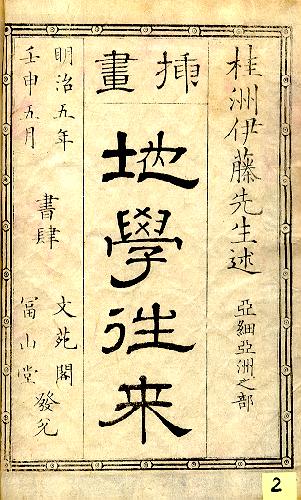 桂洲伊藤先生述
亞細亞洲之部
插畫
地學往来
明治五年
壬申五月
書肆
文苑閣
冨山堂
發兌
2